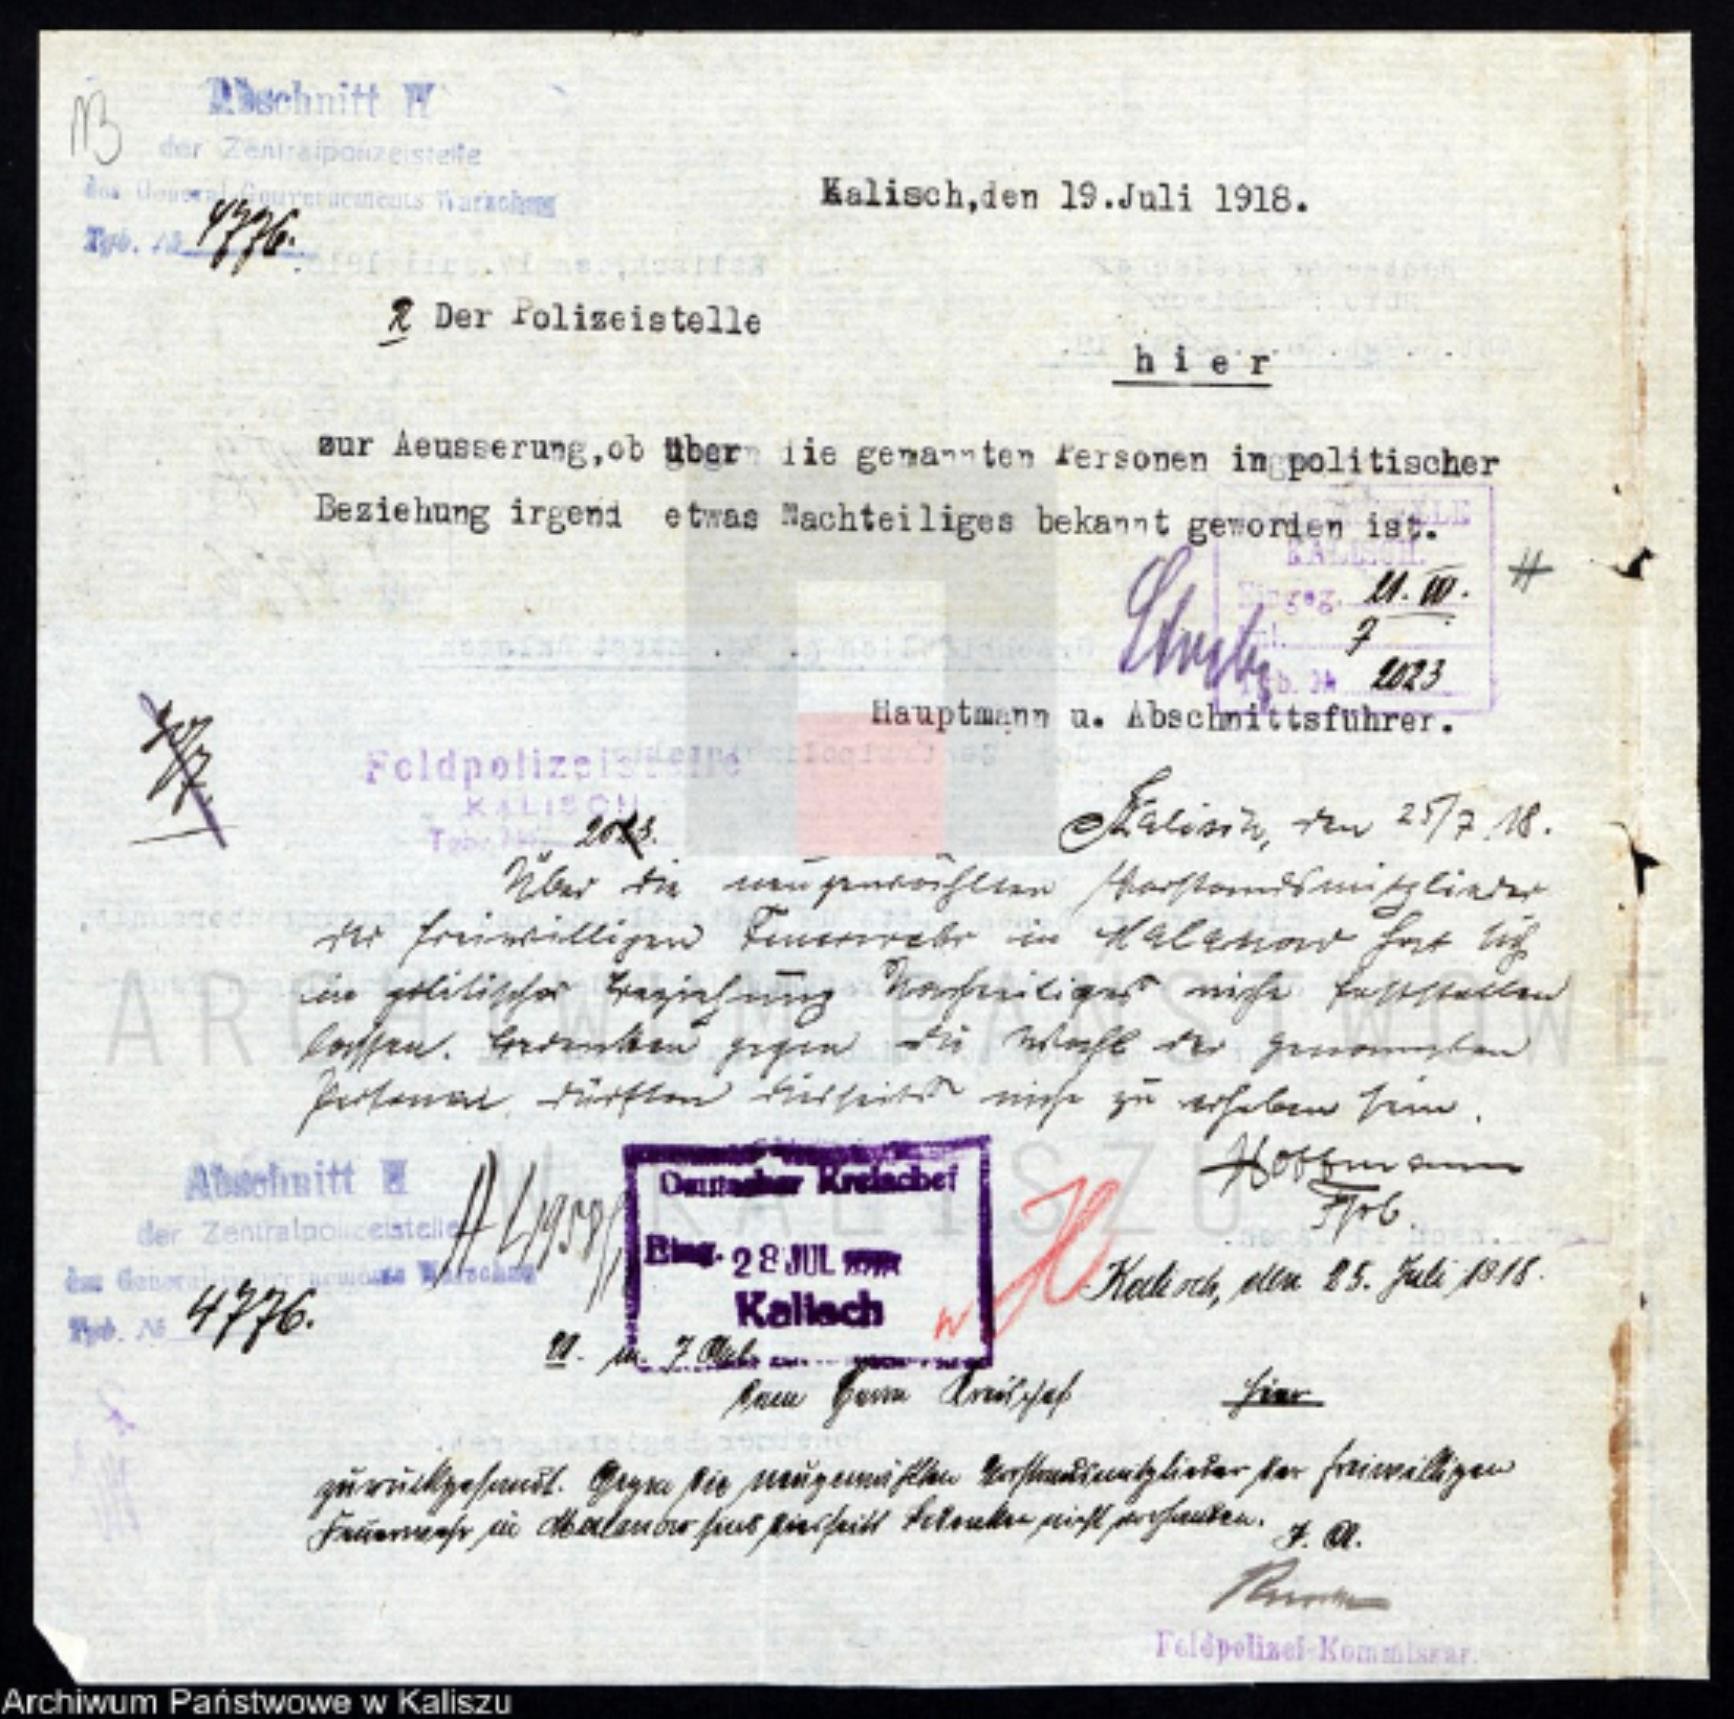 Abschnitt IV
der Zentralpolizeistelle
des General-Gouvernements Warschau
Tgb. № 4776.
Kalisch,den 19.Juli 1918.
Der Polizeistelle
hier
zur Aeusserung,ob über die genannten Personen in politischer
Beziehung irgend etwas Nachteiliges bekannt geworden ist.
KALISCH.
Eingeg. 21. VII.
7
Tgb. № 2023
Hauptmann u. Abschnittsführer.
Feldpolizeistelle
KALISCH
2023.
Kalisch, den 25/7.18.
Über die neugewählten Vorstandsmitglieder
der freiwilligen Feuerwehr in Malanow hat sich
in politischer Beziehung Nachteiliges nicht feststellen
lassen. Bedenken gegen die Wahl der genannten
Personen dürften diesseits nicht zu erheben sein.
Hoffmann
Abschnitt IV
der Zentralpolizeistelle
des General-Gouvernements Warschau
Tgb. № 4776.
Deutscher Kreischef
Eing. 28 JUL
Kalisch
Kalisch, den 25. Juli 1918.
dem Herrn Kreischef hier
zurückgesandt. Gegen die neugewählten Vorstandsmitglieder der freiwilligen
Feuerwehr in Malanow sind diesseits Bedenken nicht vorhanden.
I. A.
Feldpolizei-Kommissar.
ARCHIWUM PAŃSTWOWE
W KALISZU
Archiwum Państwowe w Kaliszu